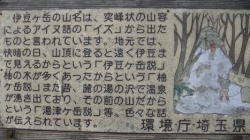 伊豆ヶ岳の山名は、突峰状の山容
によるアイヌ語の「イズ」から出た
ものと言われています。地元では、
快晴の日、山頂に登ると遠く伊豆ま
で見えるからという「伊豆ヶ岳説」
柚の木が多くあったからという「柚
ヶ岳説」また昔、麓の湯の沢で温泉
が湧き出ており、その前の山だから
という「湯津ヶ岳説」等、色々な話
が伝えられています。
環境庁・埼玉県